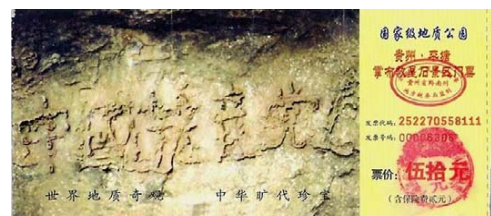 中國共产党亡
世界地质奇观
中华旷代珍宝
国家级地质公园
贵州·平塘
掌布藏字石景区门票
发票代码:252270558111
发票号码:00006306
票价:伍拾元
(含保险费贰元)